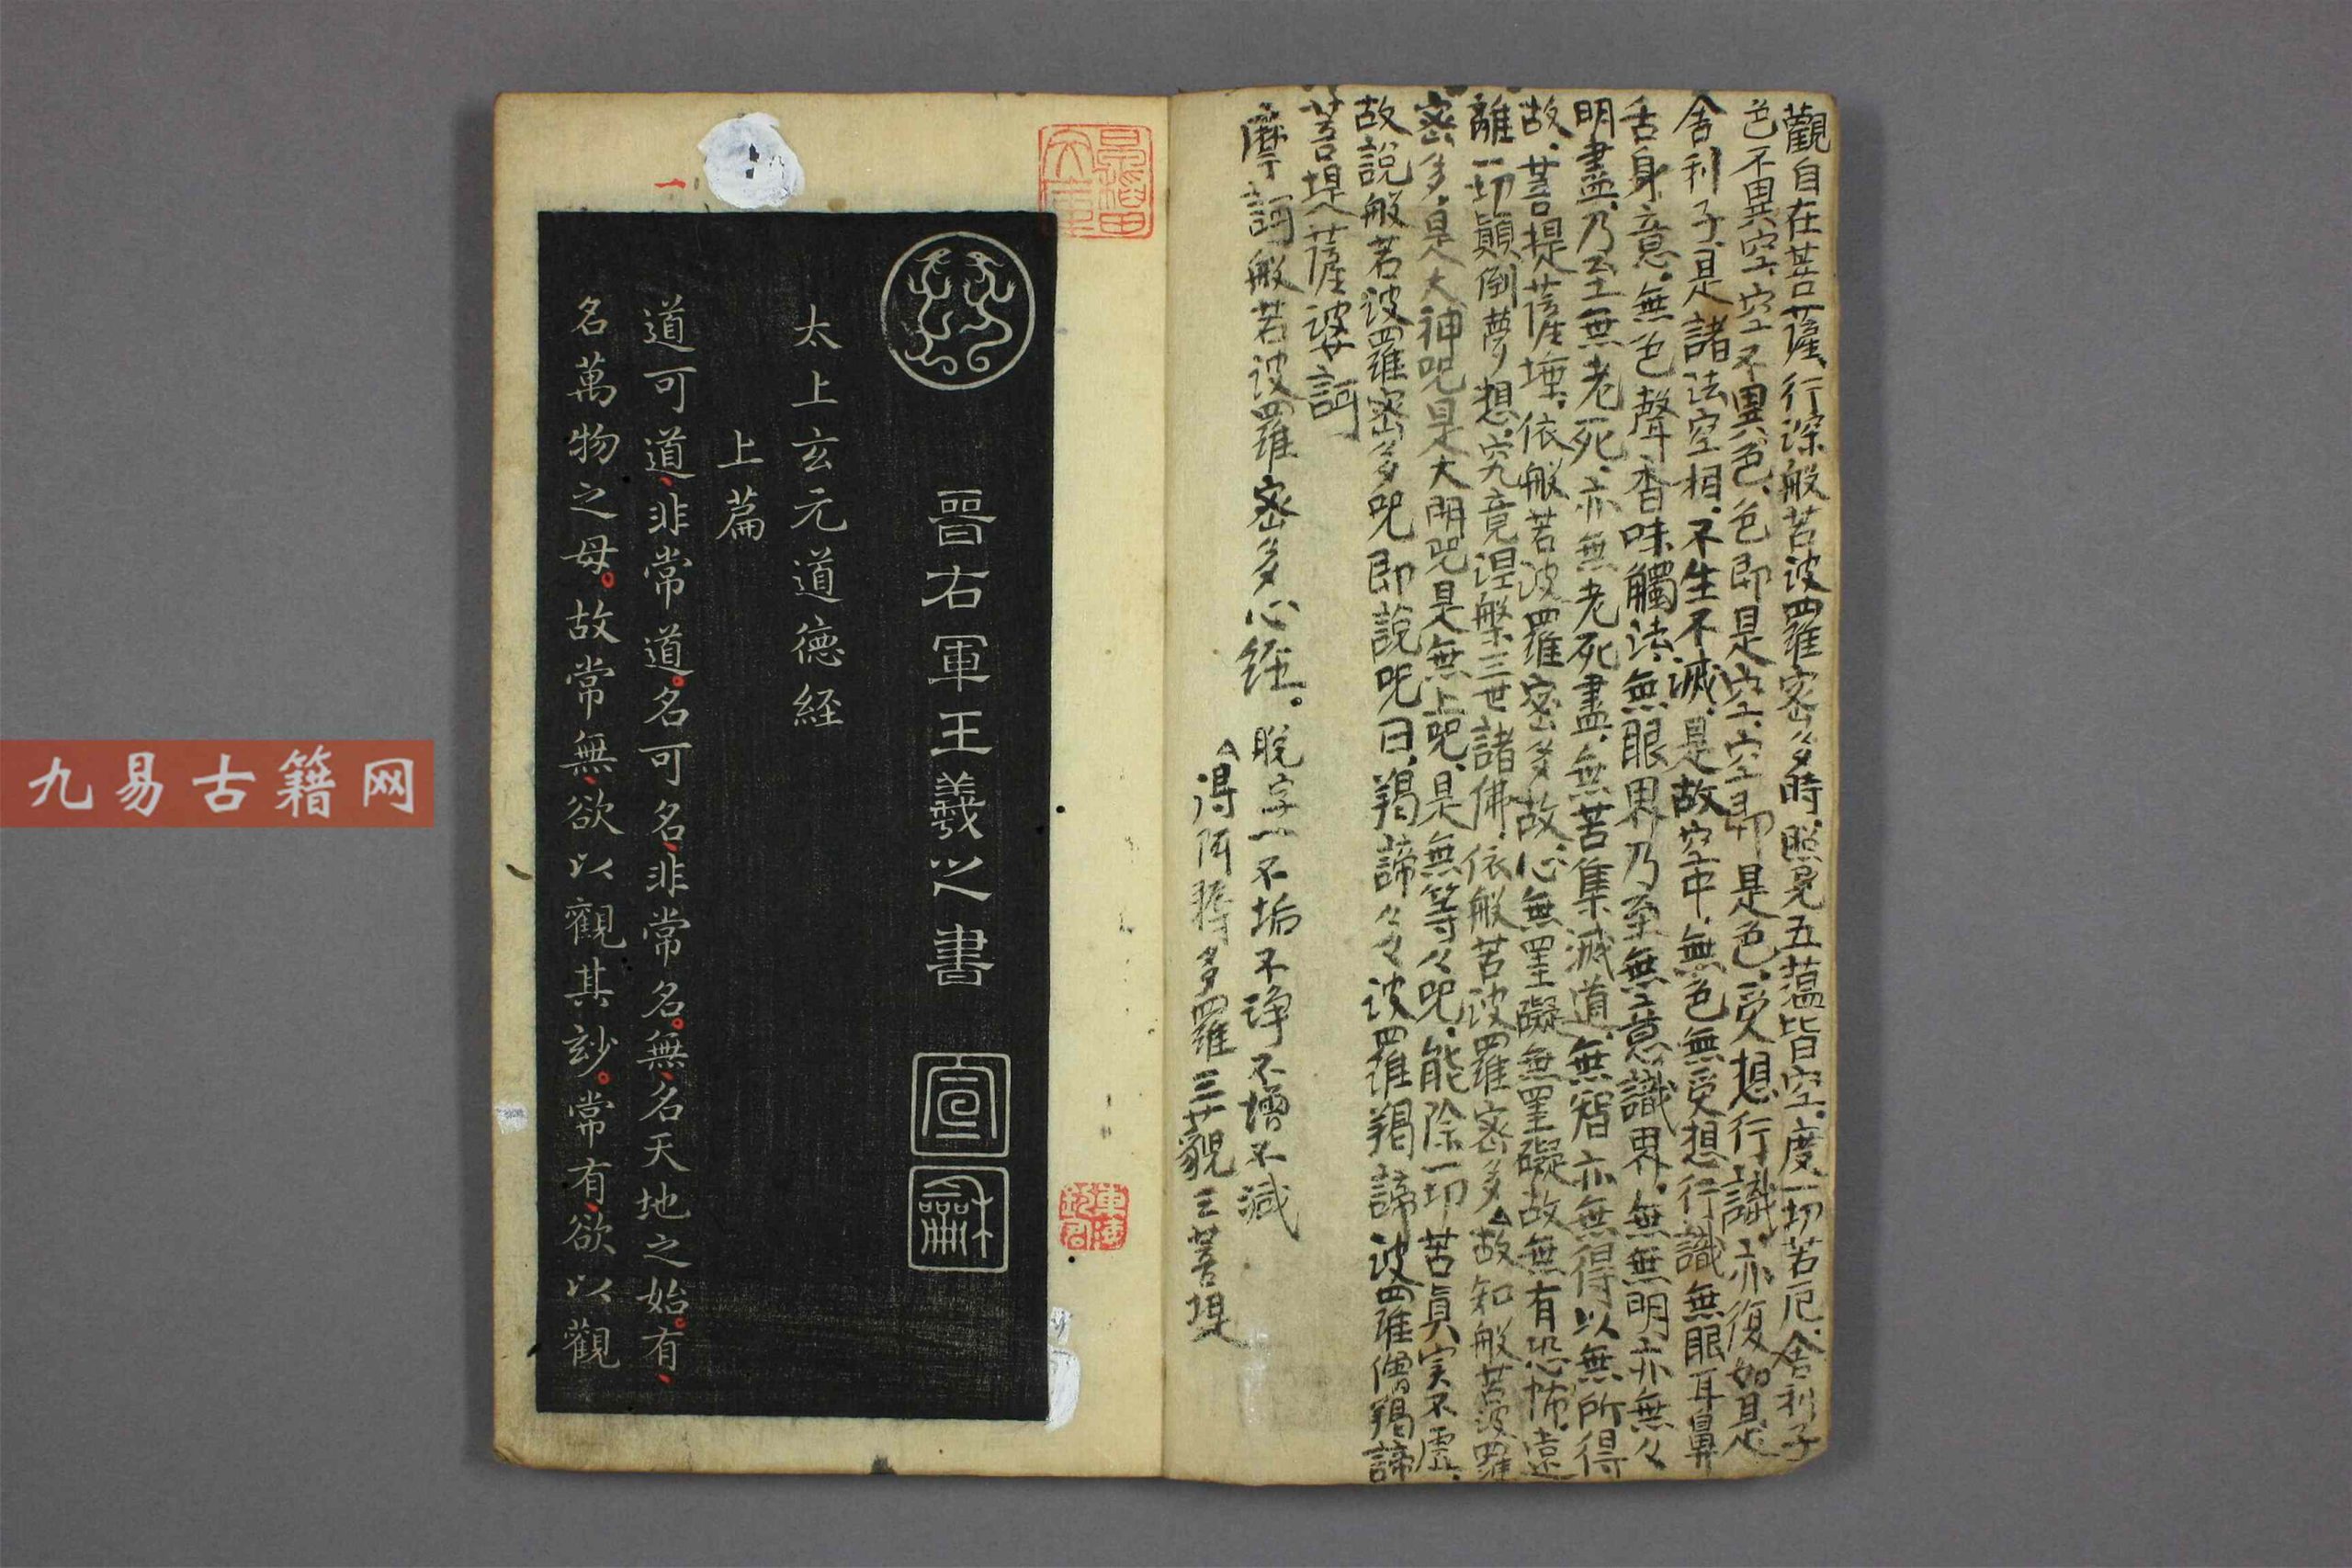 觀自在菩薩、行深般若波羅密多時、照見五蘊皆空、度一切若厄、舍利子
色不異空、空不異色、色即是空、空即是色、受想行識、亦復如是
舍利子、是諸法空相、不生不滅、是故空中、無色無受想行識無眼耳鼻
舌身意、無色聲香味觸法、無眼界乃至無意識界、無無明亦無々
明盡、乃至無老死、亦無老死盡、無苦集滅道、無智亦無得以無所得
故、菩提薩埵、依般若波羅密多故、心無罣礙無罣礙故無有恐怖、遠
離一切顛倒夢想、究竟涅槃三世諸佛、依般若波羅密多、故知般若波羅
密多、是大神呪是大明呪是無上呪、是無等々呪、能除一切苦眞実不虛、
故說般若波羅密多呪即說呪曰、羯諦々々波羅羯諦波羅僧羯諦
菩堤薩婆訶
摩訶般若波羅密多心経。脫字一不垢不浄不增不減
得阿耨多羅三藐三菩提
晉右軍王羲之書
宣
龢
太上玄元道德経
上篇
道可道、非常道。名可名、非常名。無、名天地之始。有、
名萬物之母。故常無、欲以觀其玅。常有、欲以觀
一
九易古籍网